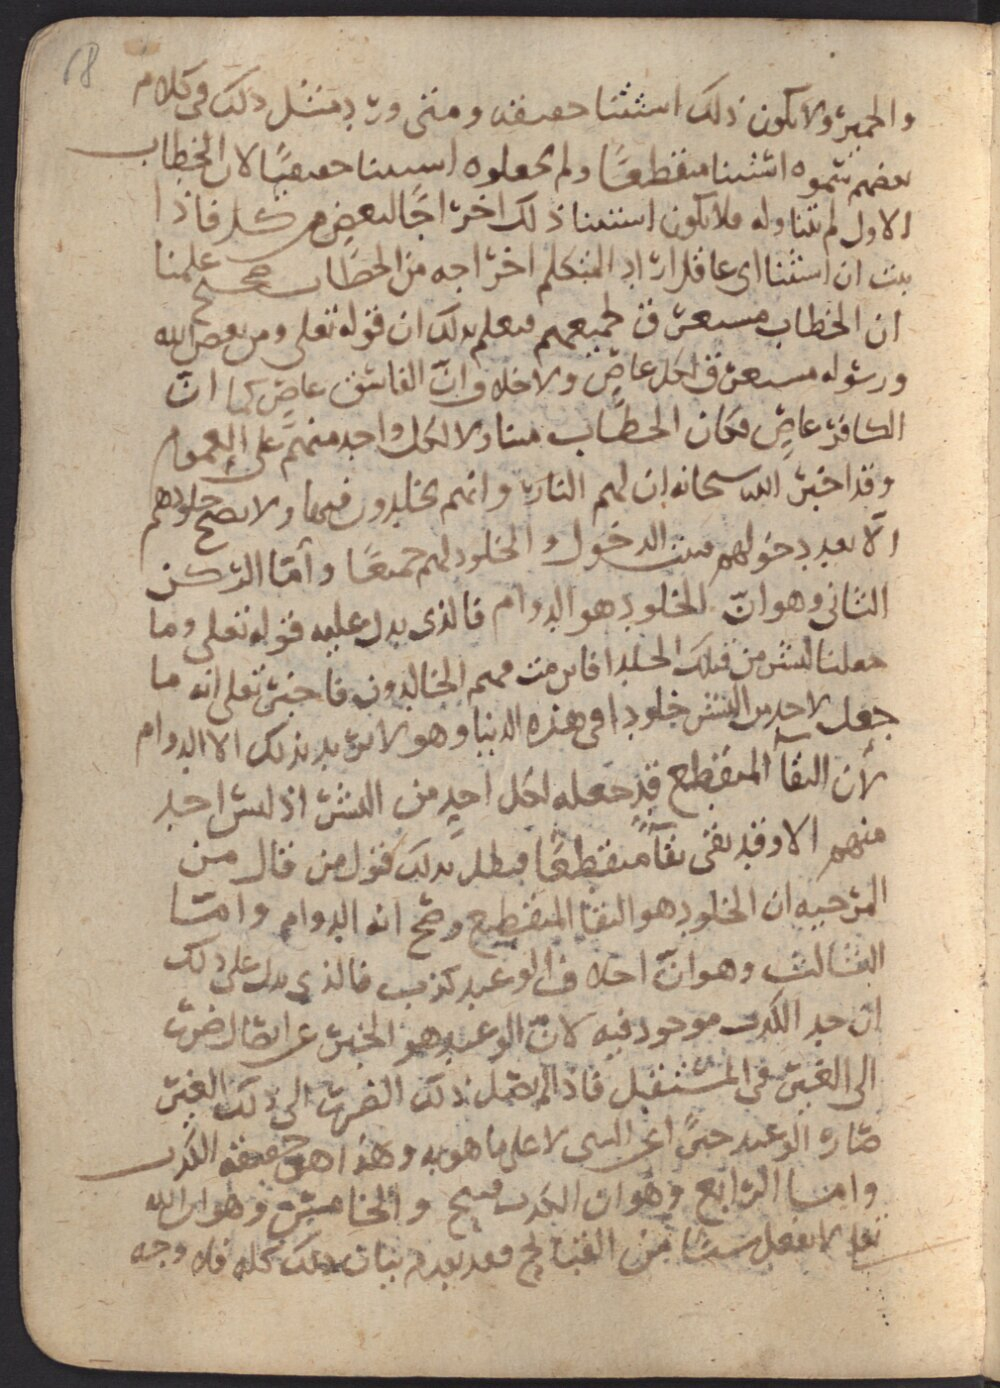 68
والحمير ولا يكون ذلك استثنا حقيقه ومتى ورد مثل ذلك في كلام
بعضهم سموه استثنا منقطعًا ولم يجعلوه استثنا حقيقيًا لان الخطاب
الاول لم يتناوله فلا يكون استثنا ذلك اخراجًا لبعض من كل فاذا
ثبت ان استثنا اي عاقل اراد المتكلم اخراجه من الخطاب صحيح علمنا
ان الخطاب مستغرق لجميعهم فيعلم بذلك ان قوله تعلى ومن يعص الله
ورسوله مستغرق لكل عاصٍ ولا خلاف انّ الفاسق عاصٍ كما انّ
الكافر عاصٍ فكان الخطاب متناولا لكل واحد منهم على العموم
وقد اخبر الله سبحانه ان لهم النار وانهم يخلدون فيها ولا يصح خلودهم
الّا بعد دخولهم فثبت الدخول والخلود لهم جميعًا وامّا الركن
الثاني وهو انّ الخلود هو الدوام فالذي يدل عليه قوله تعلى وما
جعلنا لبشر من قبلك الخلد افاين مت فهم الخالدون فاخبر تعلى انه ما
جعل لاحد من البشر خلودا في هذه الدنيا وهو لا يريد بذلك الا الدوام
لأن البقآ المنقطع قد جعله لكل احدٍ من البشر اذ ليس احد
منهم الا وقد بقى بقآً منقطعًا فبطل بذلك قول من قال من
المرجيه ان الخلود هو البقا المنقطع وصح انه الدوام وامّا
الثالث وهو انّ اخلاف الوعيد كذب فالذي يدل على ذلك
ان حد الكذب موجود فيه لانّ الوعيد هو الخبر عن ايصال ضرر
الى الغير في المستقبل فاذا لم يصل ذلك الضرر الى ذلك الغير
صار الوعيد خبرًا عن الشي لا على ما هو به وهذا هو حقيقة الكذب
وامّا الرابع وهو ان الكذب قبيح والخامس وهو ان الله
تعلى لا يفعل شيئًا من القبائح فقد تقدم بيان ذلك كله فلا وجه